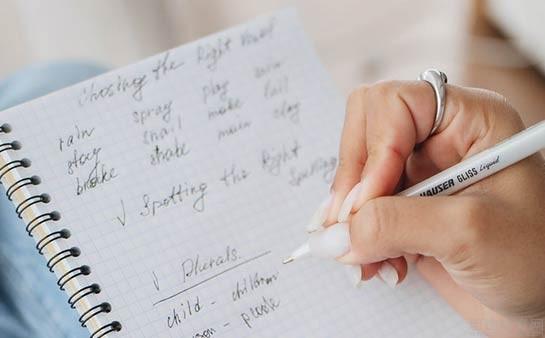 Chosing the Right Vowel
rain spray play
stay snail make fail
brake shake main clay
√ Spotting the Right
Spelling
√ Plurals.
child - children
son - people
HAUSER GLISS Liquid